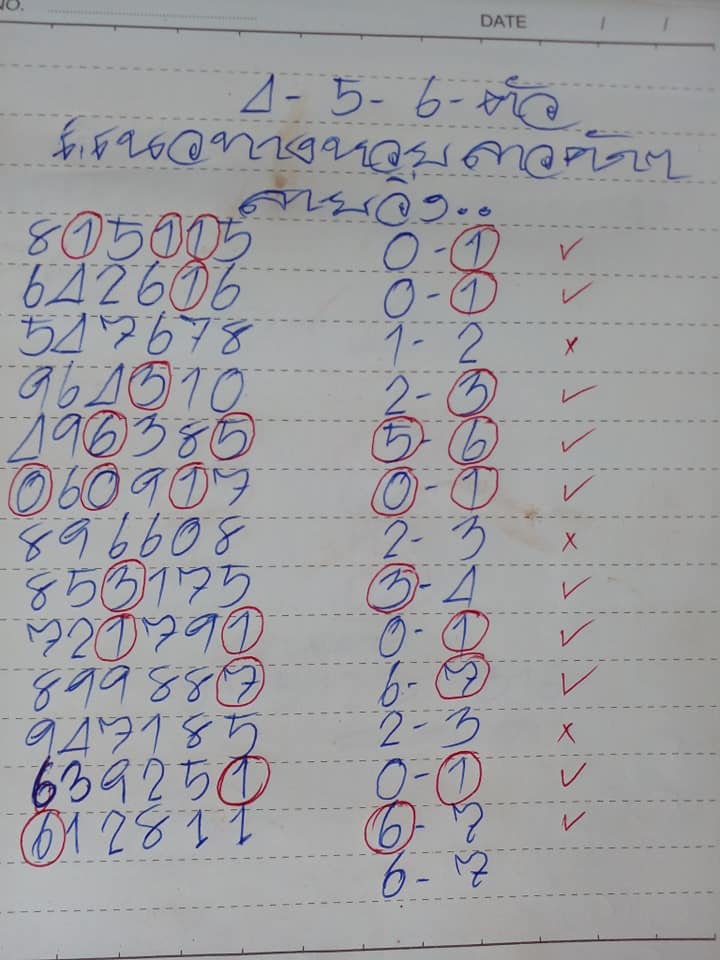 NO. DATE / /
4- 5- 6- ตัว
แนวทางหวย ลาวคัดๆ
สายวิ่ง..
815115 0-1 ✓
642616 0-1 ✓
547678 1-2 x
964310 2-3 ✓
496385 5-6 ✓
060917 0-1 ✓
896608 2-3 x
853175 3-4 ✓
721791 0-1 ✓
899887 6-7 ✓
947185 2-3 x
639251 0-1 ✓
612811 6-7 ✓
6-7